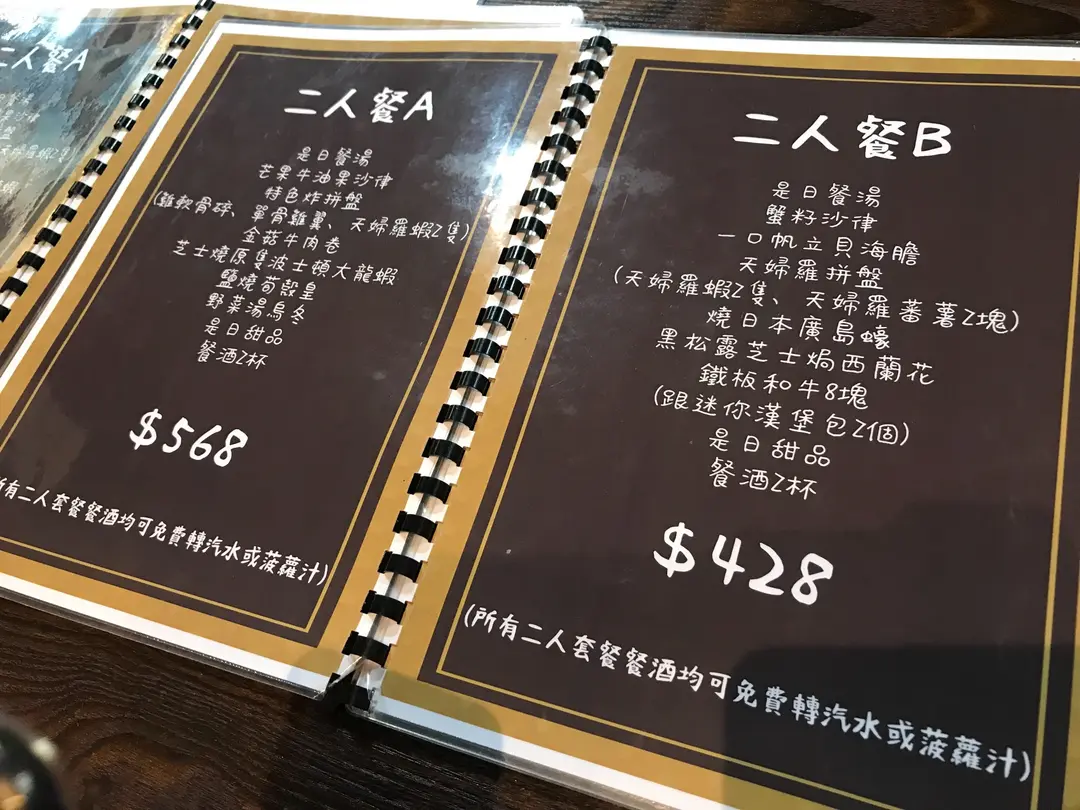 二人餐A
天婦羅蝦2隻)
二人餐A
是日餐湯
芒果牛油果沙律
特色炸拼盤
(雞軟骨碎、單骨雞翼、天婦羅蝦2隻)
金菇牛肉卷
芝士燒原隻波士頓大龍蝦
鹽燒荀殼皇
野菜湯烏冬
是日甜品
餐酒2杯
$568
所有二人套餐餐酒均可免費轉汽水或菠蘿汁)
二人餐B
是日餐湯
蟹籽沙律
一口帆立貝海膽
天婦羅拼盤
(天婦羅蝦2隻、天婦羅蕃薯2塊)
燒日本廣島蠔
黑松露芝士焗西蘭花
鐵板和牛8塊
(跟迷你漢堡包2個)
是日甜品
餐酒2杯
$428
(所有二人套餐餐酒均可免費轉汽水或菠蘿汁)